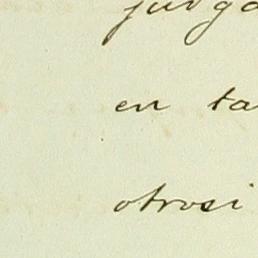 juzga
en ta
otrosi